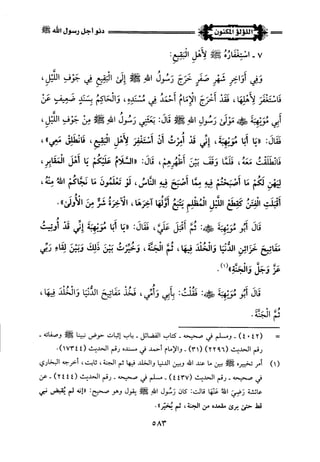 اللؤلؤ المكنون
دنو أجل رسول الله ﷺ
٧ - استغفاره ﷺ لأهل البقيع:
وفي أواخر شهر صفر خرج رسول الله ﷺ إلى البقيع في جوف الليل،
فاستغفر لأهلها، فقد أخرج الإمام أحمد في مسنده، والحاكم بسند ضعيف عن
أبي مويهبة ﷺ مولى رسول الله ﷺ قال: بعثني رسول الله ﷺ من جوف الليل،
فقال: «يا أبا مويهبة، إني قد أمرت أن أستغفر لأهل البقيع، فانطلق معي»،
فانطلقت معه، فلما وقف بين أظهرهم، قال: «السلام عليكم يا أهل المقابر،
ليهن لكم ما أصبحتم فيه مما أصبح فيه الناس، لو تعلمون ما نجاكم الله منه،
أقبلت الفتن كقطع الليل المظلم يتبع أولها آخرها، الآخرة شر من الأولى».
قال أبو مويهبة: ثم أقبل علي، فقال: «يا أبا مويهبة إني قد أوتيت
مفاتيح خزائن الدنيا والخلد فيها، ثم الجنة، وخيرت بين ذلك وبين لقاء ربي
عز وجل والجنة»(١).
قال أبو مويهبة: فقلت: بأبي وأمي، فخذ مفاتيح الدنيا والخلد فيها،
ثم الجنة.
= (٤٠٤٢) - ومسلم في صحيحه - كتاب الفضائل - باب إثبات حوض نبينا ﷺ وصفاته -
رقم الحديث (٢٢٩٦) (٣١) - والإمام أحمد في مسنده رقم الحديث (١٧٣٤٤).
(١) أمر تخييره ﷺ بين ما عند الله وبين الدنيا والخلد فيها ثم الجنة، ثابت، أخرجه البخاري
في صحيحه - رقم الحديث (٤٤٣٧) - مسلم في صحيحه - رقم الحديث (٢٤٤٤) - عن
عائشة رضي الله عنها قالت: كان رسول الله ﷺ يقول وهو صحيح: «إنه لم يقبض نبي
قط حتى يرى مقعده من الجنة، ثم يخير».
٥٨٣